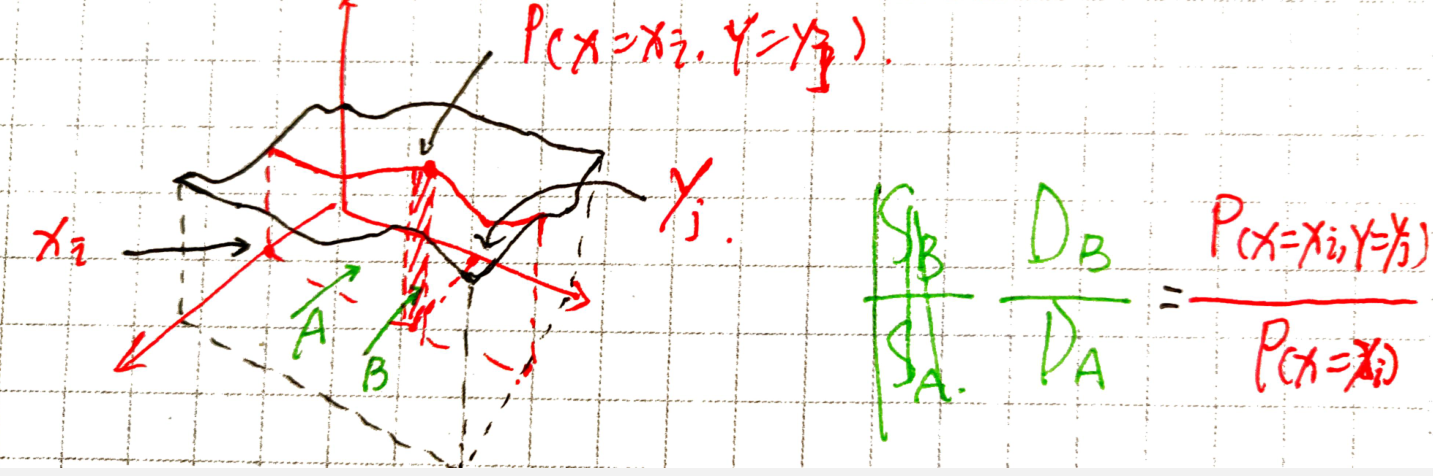 P(X=xi, Y=yj).
Yj.
xi
A
B
SB/SA. DB/DA = P(X=xi,Y=yj)/P(X=xi)